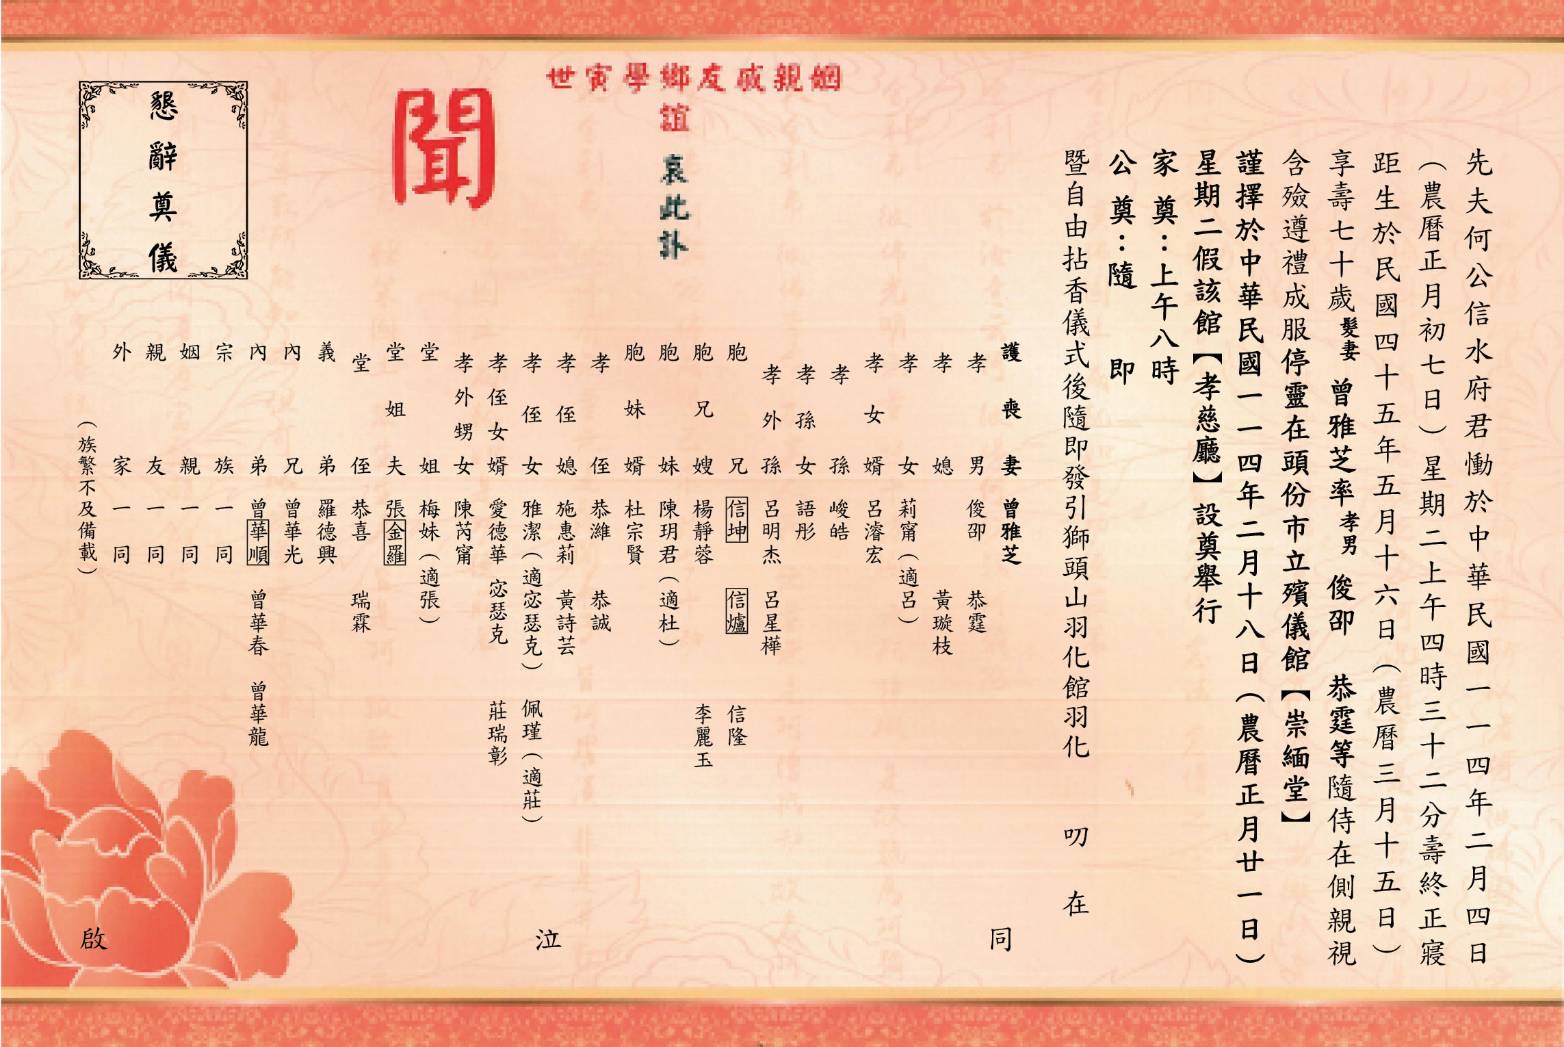 先夫何公信水府君慟於中華民國一一四年二月四日
（農曆正月初七日）星期二上午四時三十二分壽終正寢
距生於民國四十五年五月十六日（農曆三月十五日）
享壽七十歲 髮妻 曾雅芝率 孝男 俊卲 恭霆等隨侍在側親視
含殮遵禮成服停靈在頭份市立殯儀館【崇緬堂】
謹擇於中華民國一一四年二月十八日（農曆正月廿一日）
星期二假該館【孝慈廳】設奠舉行
家奠：上午八時
公奠：隨即
暨自由拈香儀式後隨即發引獅頭山羽化館羽化 叨在
世寅學鄉友戚親姻
誼 哀此訃
聞
護喪妻 曾雅芝
孝男 俊卲 恭霆
孝媳 黃璇枝
孝女 莉甯（適呂）
孝女婿 呂濬宏
孝孫 峻皓
孝孫女 語彤
孝外孫 呂明杰 呂星樺
胞兄 信坤 信爐 信隆
胞兄嫂 楊靜蓉 李麗玉
胞妹 陳玥君（適杜）
胞妹婿 杜宗賢
孝侄 恭濰 恭誠
孝侄媳 施惠莉 黃詩芸
孝侄女 雅潔（適宓瑟克） 佩瑾（適莊）
孝侄女婿 愛德華 宓瑟克 莊瑞彰
孝外甥女 陳芮甯
堂姐 梅妹（適張）
堂姐夫 張金羅
堂侄 恭喜 瑞霖
義弟 羅德興
內兄 曾華光
內弟 曾華順 曾華春 曾華龍
宗族一同
姻親一同
親友一同
外家一同
（族繁不及備載）
同 泣 啟
懇辭奠儀